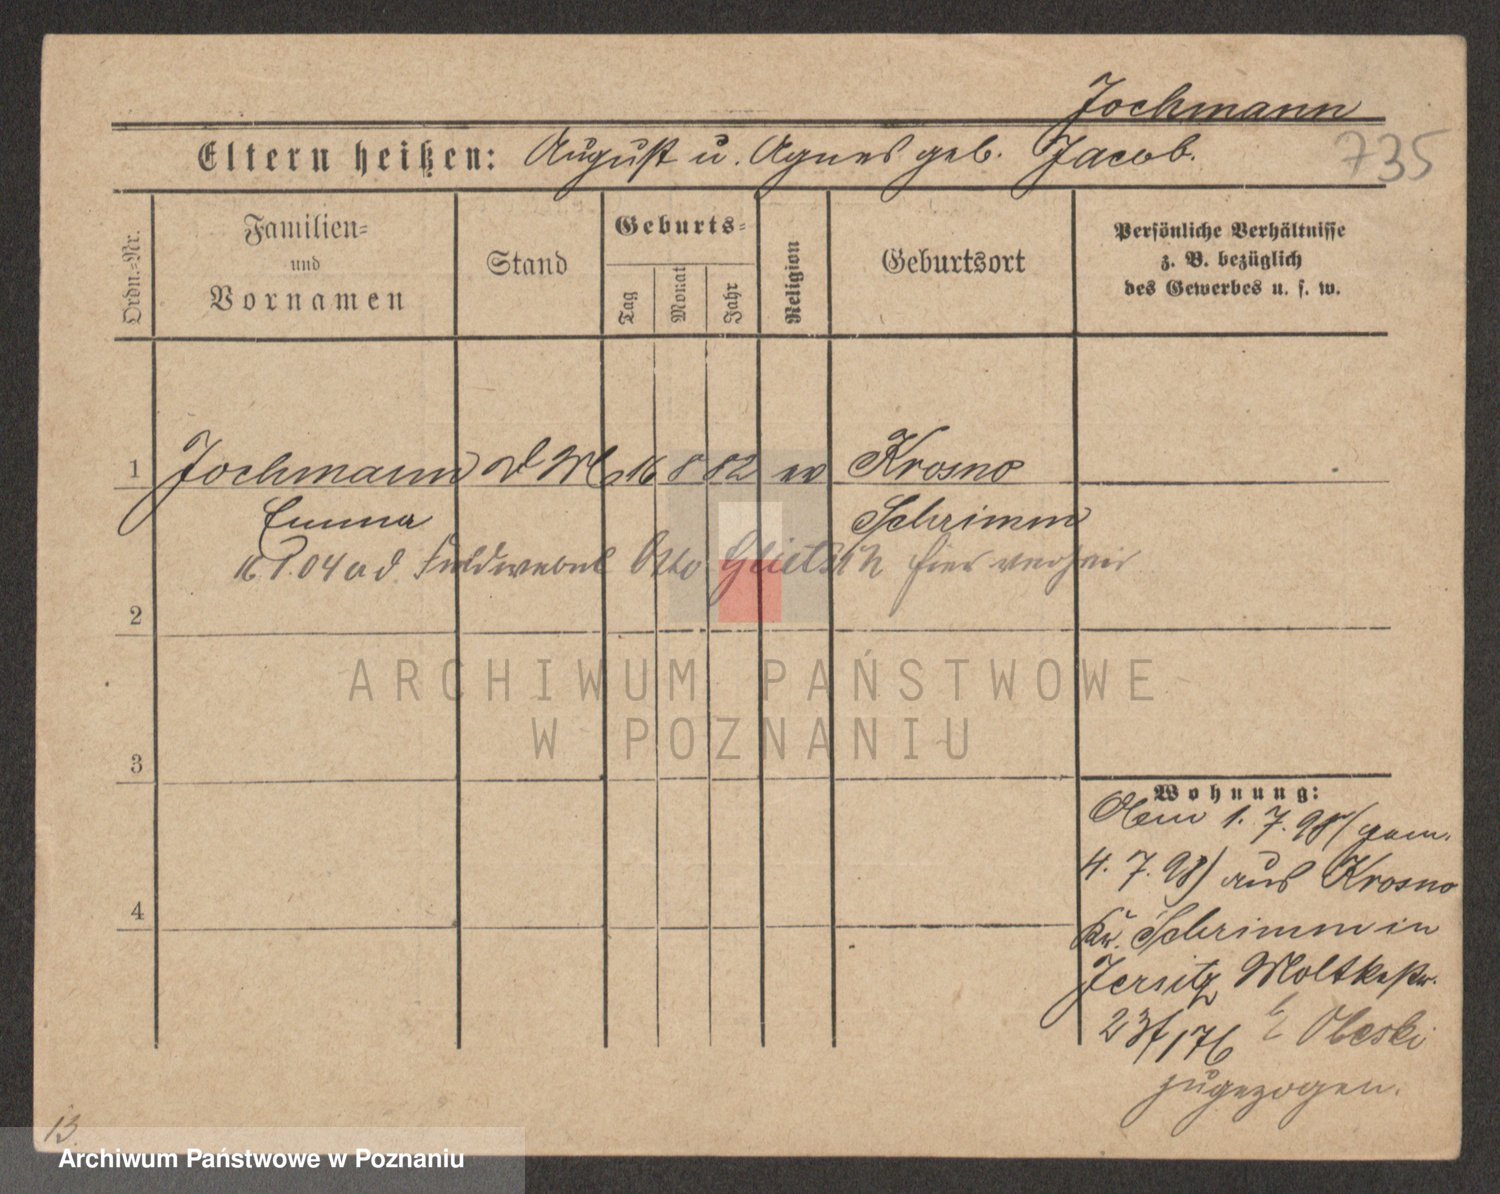 Jochmann
Eltern heißen: August u. Agnes geb. Jacob.
735
Ordn.=Nr.
Familien=
und
Vornamen
Stand
Geburts=
Tag
Monat
Jahr
Religion
Geburtsort
Persönliche Verhältnisse
z. B. bezüglich
des Gewerbes u. s. w.
1 Jochmann 16 8 82 ev Krosno
Emma Schrimm
04 Feldwebel Otto hier
2
ARCHIWUM PAŃSTWOWE
W POZNANIU
3
Wohnung:
1. 7. 98 / gem.
4. 7. 98) aus Krosno
4
Kr. Schrimm in
Jersitz Moltkestr.
Oleski
zugezogen.
13.
Archiwum Państwowe w Poznaniu